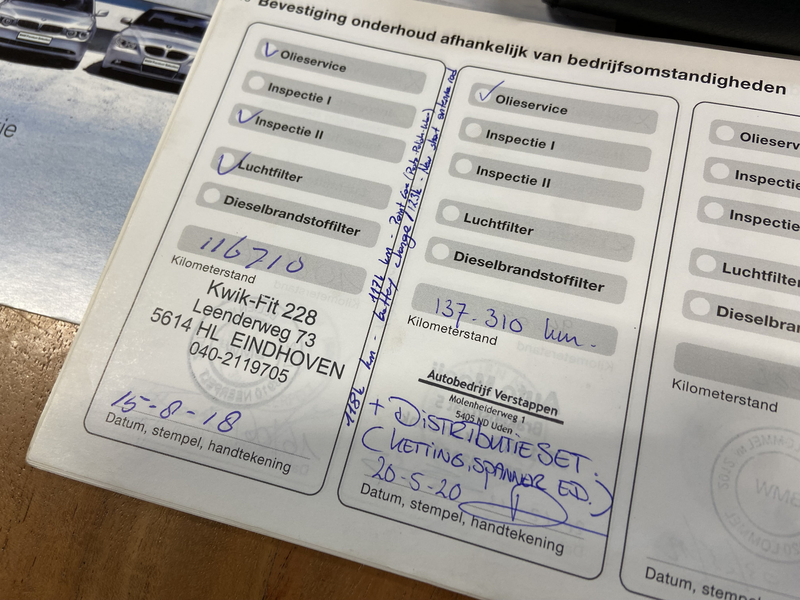 Bevestiging onderhoud afhankelijk van bedrijfsomstandigheden
Olieservice
Inspectie I
Inspectie II
Luchtfilter
Dieselbrandstoffilter
116710
Kilometerstand
Kwik-Fit 228
Leenderweg 73
5614 HL EINDHOVEN
040-2119705
15-8-18
Datum, stempel, handtekening
118k km - battery change / 123k - New short antenna rod
117k km - Paint
Olieservice
Inspectie I
Inspectie II
Luchtfilter
Dieselbrandstoffilter
137.310 km.-
Kilometerstand
Autobedrijf Verstappen
Molenheiderweg 1
5405 ND Uden
+ DISTRIBUTIESET.
(KETTING, SPANNER ED.)
20-5-20
Datum, stempel, handtekening
Olieserv
Inspectie
Inspectie
Luchtfilter
Dieselbran
Kilometerstand
WME
Datum, stempe